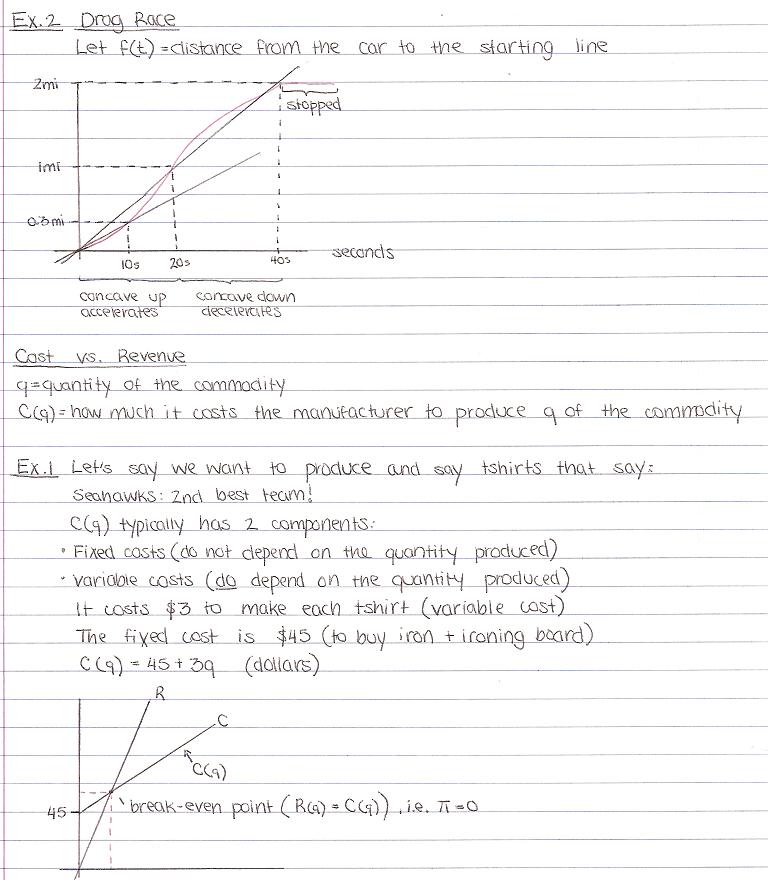 Ex.2 Drag Race
Let f(t) = distance from the car to the starting line
2mi
stopped
1mi
0.3mi
10s 20s 40s seconds
concave up concave down
accelerates decelerates
Cost vs. Revenue
q = quantity of the commodity
C(q) = how much it costs the manufacturer to produce q of the commodity
Ex.1 Let's say we want to produce and say tshirts that say:
Seahawks: 2nd best team!
C(q) typically has 2 components:
· Fixed costs (do not depend on the quantity produced)
· variable costs (do depend on the quantity produced)
It costs $3 to make each tshirt (variable cost)
The fixed cost is $45 (to buy iron + ironing board)
C(q) = 45 + 3q (dollars)
R
C
C(q)
45 break-even point (R(q) = C(q)), i.e. π = 0